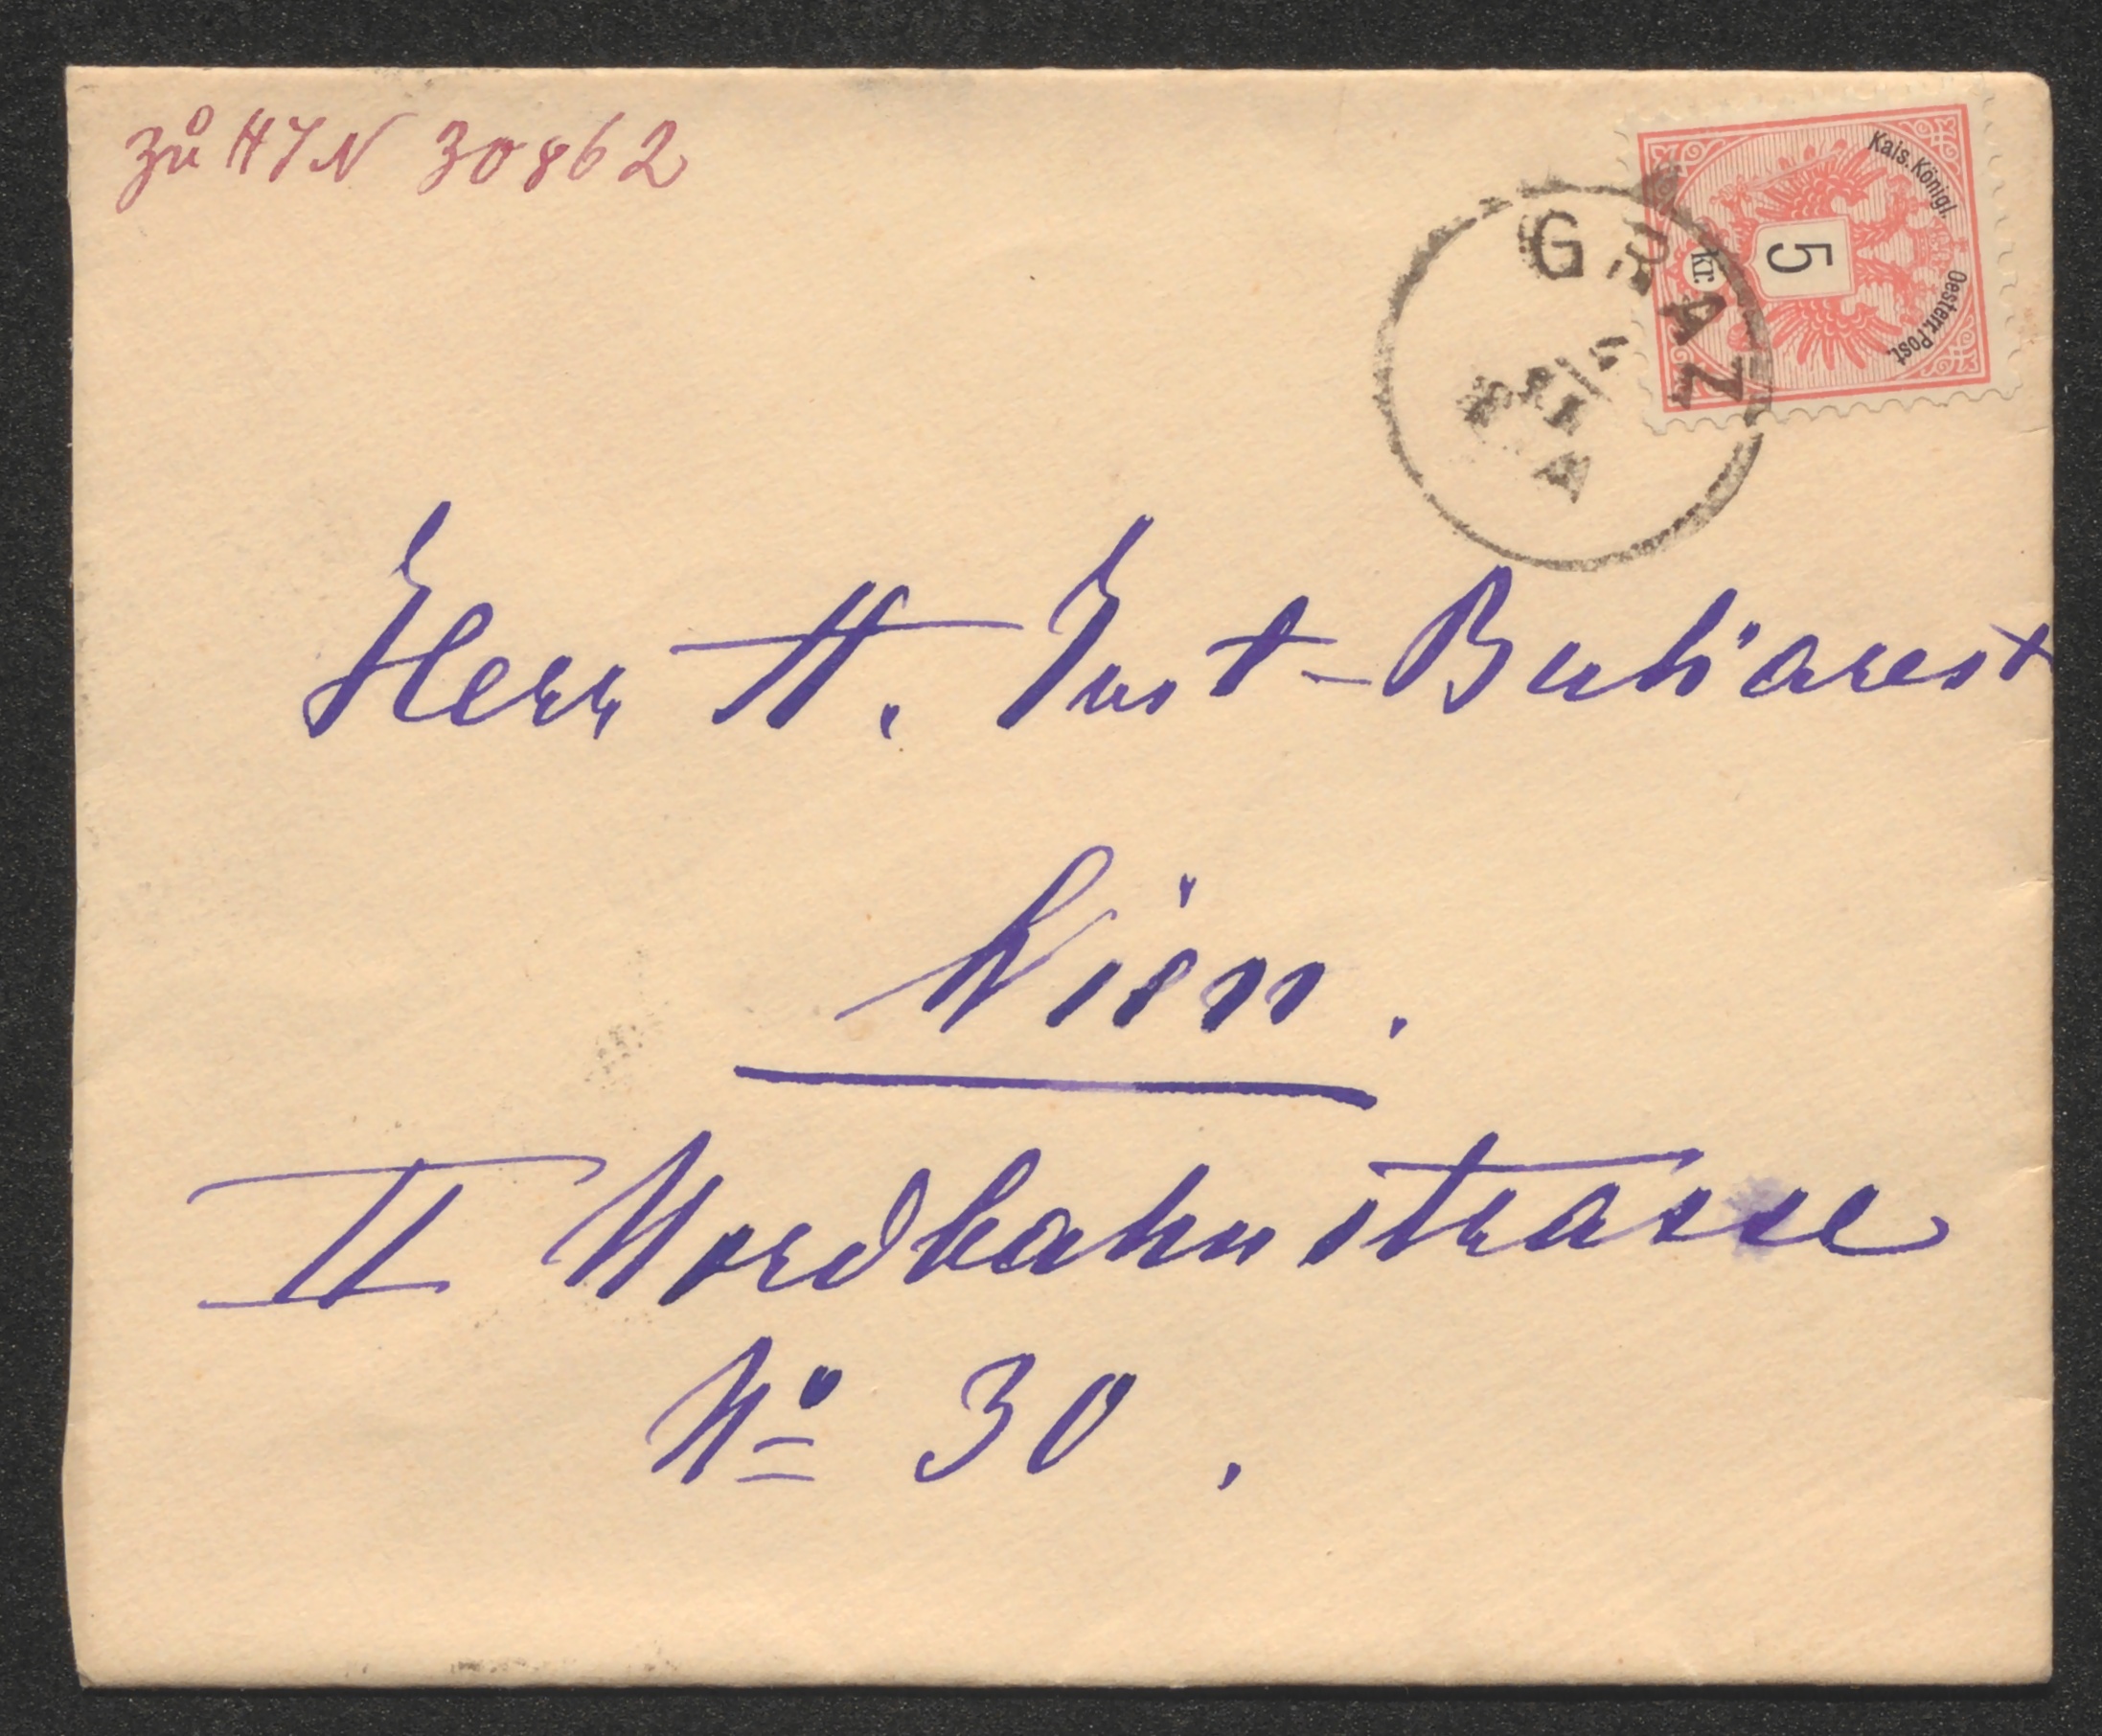 zu HIN 30862
Kais. Königl. Oesterr. Post.
5
kr.
GRAZ
Herr H. Just-Buharest
Wien.
II Nordbahnstrasse
No 30.